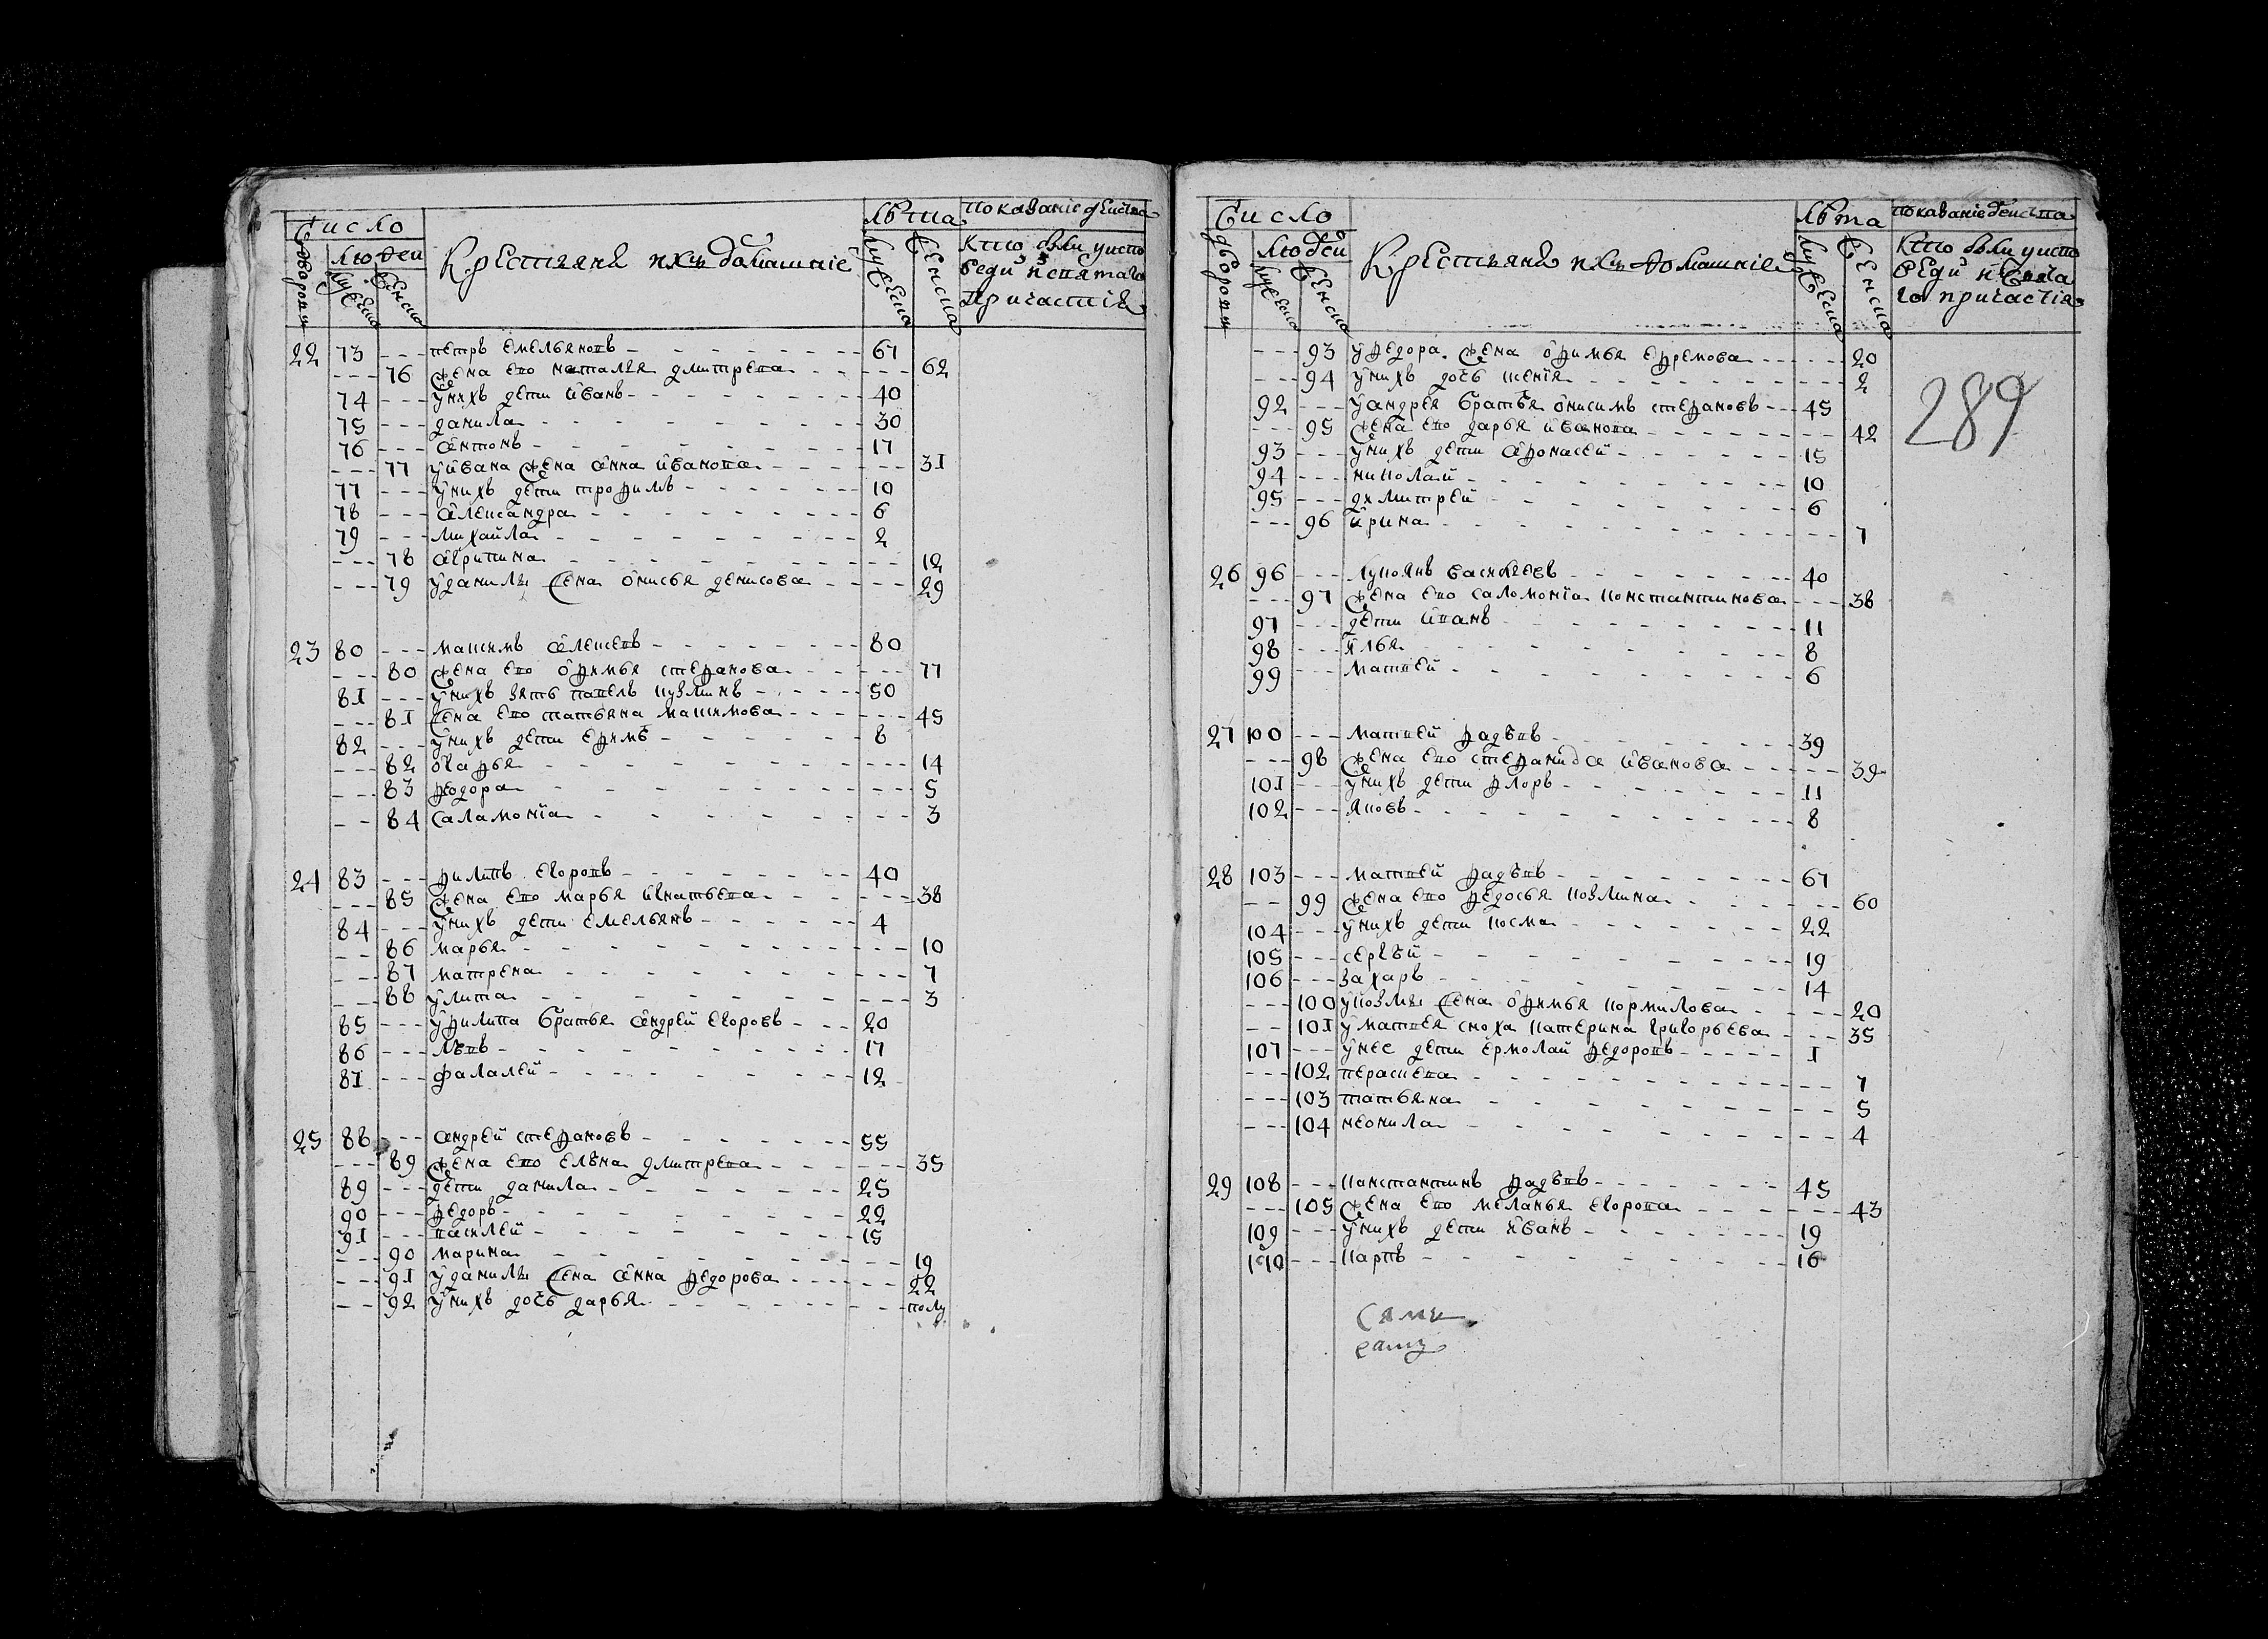 Число
Дворовъ
людей
мужеска
женска
Крестьяня и ихъ домашние
лѣта
мужеска
женска
показаніе действа
кто были у испо
веди и святаго
причастия
22 73 --- петръ емельяновъ 67
--- 76 жена ево наталья дмитрева 62
74 --- у нихъ дети иванъ 40
75 --- данила 30
76 --- антонъ 17
--- 77 у ивана жена анна иванова 31
77 --- у нихъ дети трофимъ 10
78 --- александра 6
79 --- михайла 2
--- 78 агрипина 12
--- 79 у данилы жена онисья денисова 29
23 80 --- максимъ алексеевъ 80
--- 80 жена ево офимья стефанова 77
81 --- у нихъ зять павелъ кузминъ 50
--- 81 жена ево татьяна максимова 45
82 --- у нихъ дети ефимъ 8
--- 82 огафья 14
--- 83 феодора 5
--- 84 саламонїа 3
24 83 --- филипъ егоровъ 40
--- 85 жена ево марья игнатьева 38
84 --- у нихъ дети емельянъ 4
--- 86 марья 10
--- 87 матрена 7
--- 88 улита 3
85 --- у филипа братья андрей егоровъ 20
86 --- лѣвъ 17
87 --- фалалей 12
25 88 --- андрей стефановъ 55
--- 89 жена ево елѣна дмитрева 35
89 --- дети данила 25
90 --- федоръ 22
91 --- василей 15
--- 90 марина 19
--- 91 у данилы жена анна федорова 22
--- 92 у нихъ дочь дарья полу
Число
дворовъ
людей
мужеска
женска
Крестьяня и ихъ домашние
лѣта
мужеска
женска
показаніе действа
кто были у испо
веди и свята
го причастія
--- 93 у федора жена офимья ефремова 20
--- 94 у нихъ дочь ксенїя 2
92 --- у андрея братья онисимъ стефановъ 45
--- 95 жена ево дарья иванова 42
93 --- у нихъ дети афонасей 15
94 --- николай 10
95 --- димитрей 6
--- 96 ирина 7
26 96 --- лукоянъ васильевъ 40
--- 97 жена ево саломонїа константинова 38
97 --- дети иванъ 11
98 --- илья 8
99 --- матвей 6
27 100 --- матвей фадѣевъ 39
--- 98 жена ево стефанида иванова 39
101 --- у нихъ дети флоръ 11
102 --- яковъ 8
28 103 --- матвей фадѣевъ 67
--- 99 жена ево федосья козмина 60
104 --- у нихъ дети косма 22
105 --- сергѣй 19
106 --- захаръ 14
--- 100 у козмы жена офимья кормилова 20
--- 101 у матвея сноха катерина григорьева 35
107 --- у нее дети ермолай федоровъ 1
--- 102 параскева 7
--- 103 татьяна 5
--- 104 неонила 4
29 108 --- канстантинъ фадѣевъ 45
--- 105 жена ево меланья егорова 43
109 --- у нихъ дети иванъ 19
110 --- карпъ 16
289